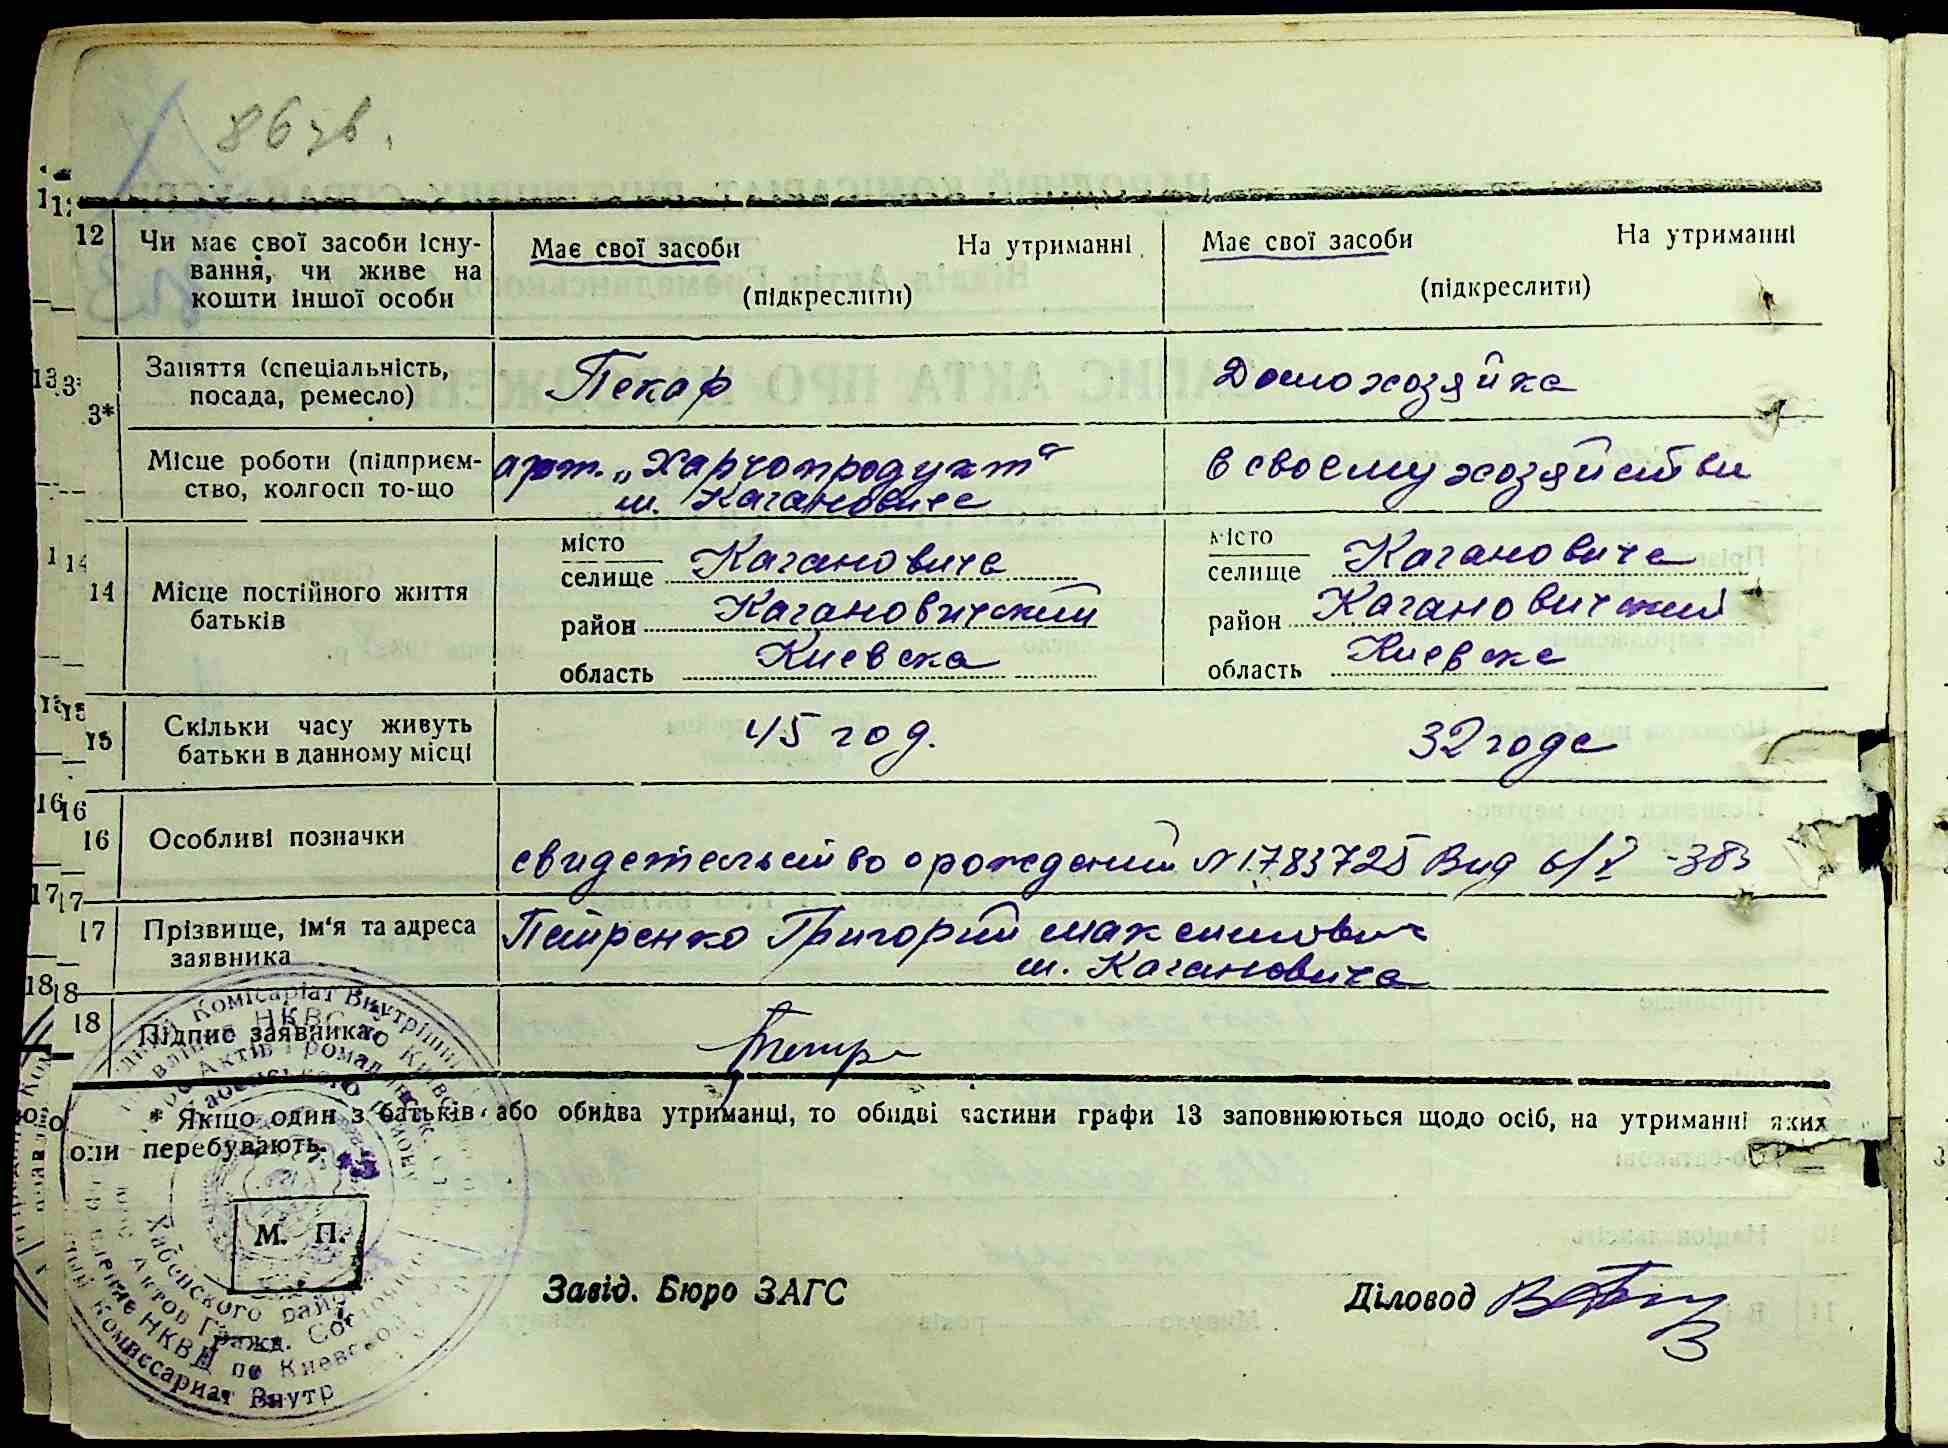 86 зв.
12 Чи має свої засоби існу-
вання, чи живе на
кошти іншої особи
Має свої засоби На утриманні
(підкреслити)
Має свої засоби На утриманні
(підкреслити)
13*
Заняття (спеціальність,
посада, ремесло)
Пекар
Домохозяйка
Місце роботи (підприєм-
ство, колгосп то-що
арт. „Харчопродукт"
м. Кагановича
в своему хозяйстви
14 Місце постійного життя
батьків
місто
селище Кагановича
район Кагановичский
область Киевска
місто
селище Кагановича
район Кагановичский
область Киевска
15 Скільки часу живуть
батьки в данному місці
45 год.
32 года
16 Особливі позначки
свидетельство о рождений N 1783725 Вид 6/I -38
17 Прізвище, ім'я та адреса
заявника
Петренко Григорий Максимович
м. Кагановича
18 Підпис заявника
Петр
* Якщо один з батьків, або обидва утриманці, то обидві частини графи 13 заповнюються щодо осіб, на утриманні яких
они перебувають.
М. П.
Завід. Бюро ЗАГС
Діловод